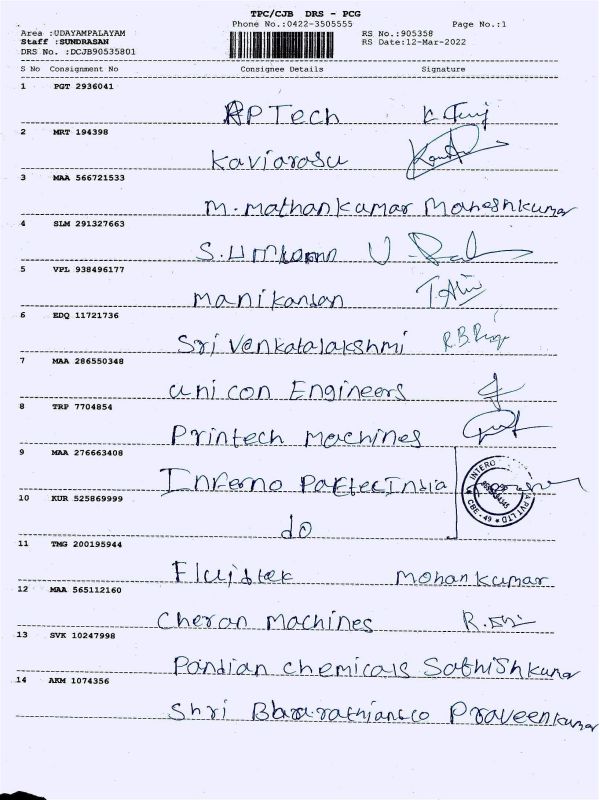 TPC/CJB DRS - PCG
Phone No.:0422-3505555 Page No.:1
Area :UDAYAMPALAYAM RS No.:905358
Staff :SUNDRASAN RS Date:12-Mar-2022
DRS No. :DCJB90535801
S No Consignment No Consignee Details Signature
1 PGT 2936041
AP Tech
2 MRT 194398
Kaviarasu
3 MAA 566721533
M. Mathan kamar Maheshkumar
4 SLM 291327663
S.
5 VPL 938496177
Manikandan
6 EDQ 11721736
Sri Venkatalakshmi
7 MAA 286550348
uni con Engineers
8 TRP 7704854
Printech Machines
9 MAA 276663408
Inferno India
INTERO PVT LTD CBE - 49
10 KUR 525869999
do
11 TMG 200195944
Fluidtek Mohan kumar
12 MAA 565112160
Cheran Machines R.
13 SVK 10247998
Pandian chemicals Sathishkumar
14 AKM 1074356
Shri Praveenkumar